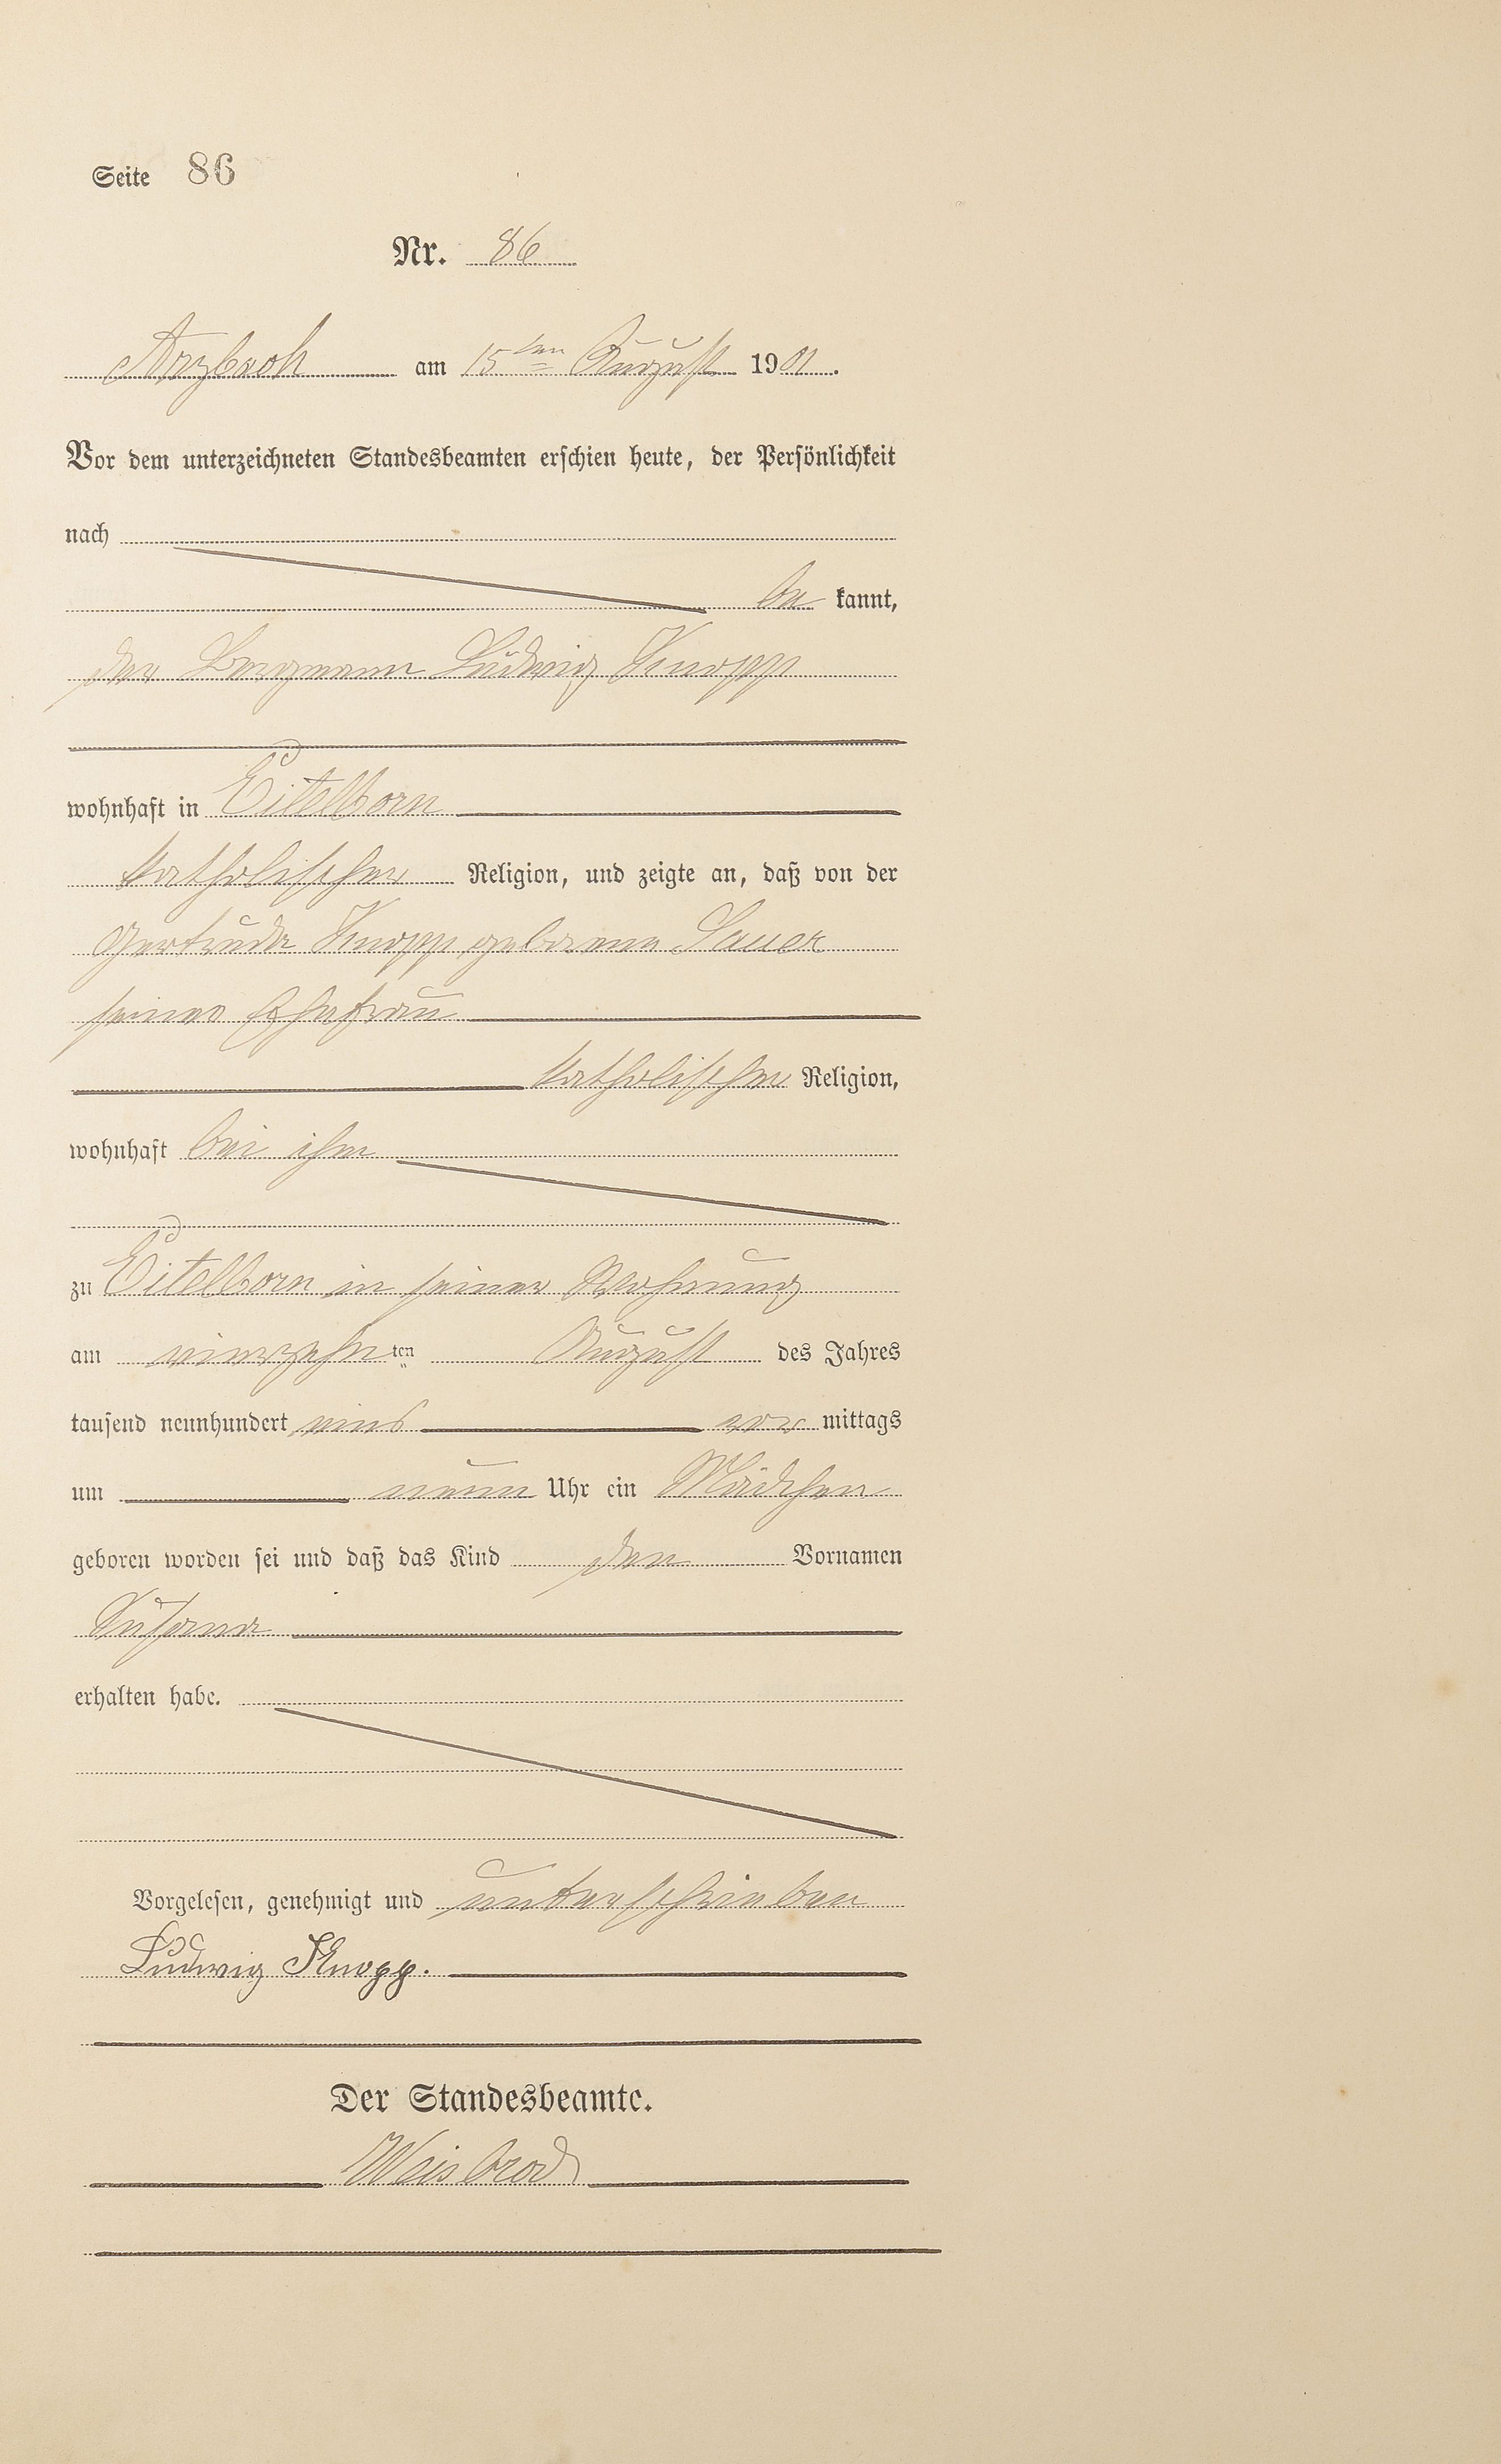 Seite 86
Nr. 86
Arzbach am 15ten August 1901.
Vor dem unterzeichneten Standesbeamten erschien heute, der Persönlichkeit
nach
be kannt,
der Bergmann Ludwig Knopp
wohnhaft in Eitelborn
katholischer Religion, und zeigte an, daß von der
Gertruda Knopp geborene Sauer
seiner Ehefrau
katholischer Religion,
wohnhaft bei ihm
zu Eitelborn in seiner Wohnung
am vierzehn ten August des Jahres
tausend neunhundert eins vor mittags
um neun Uhr ein Mädchen
geboren worden sei und daß das Kind den Vornamen
Susana
erhalten habe.
Vorgelesen, genehmigt und unterschrieben
Ludwig Knopp.
Der Standesbeamte.
Weisbrod